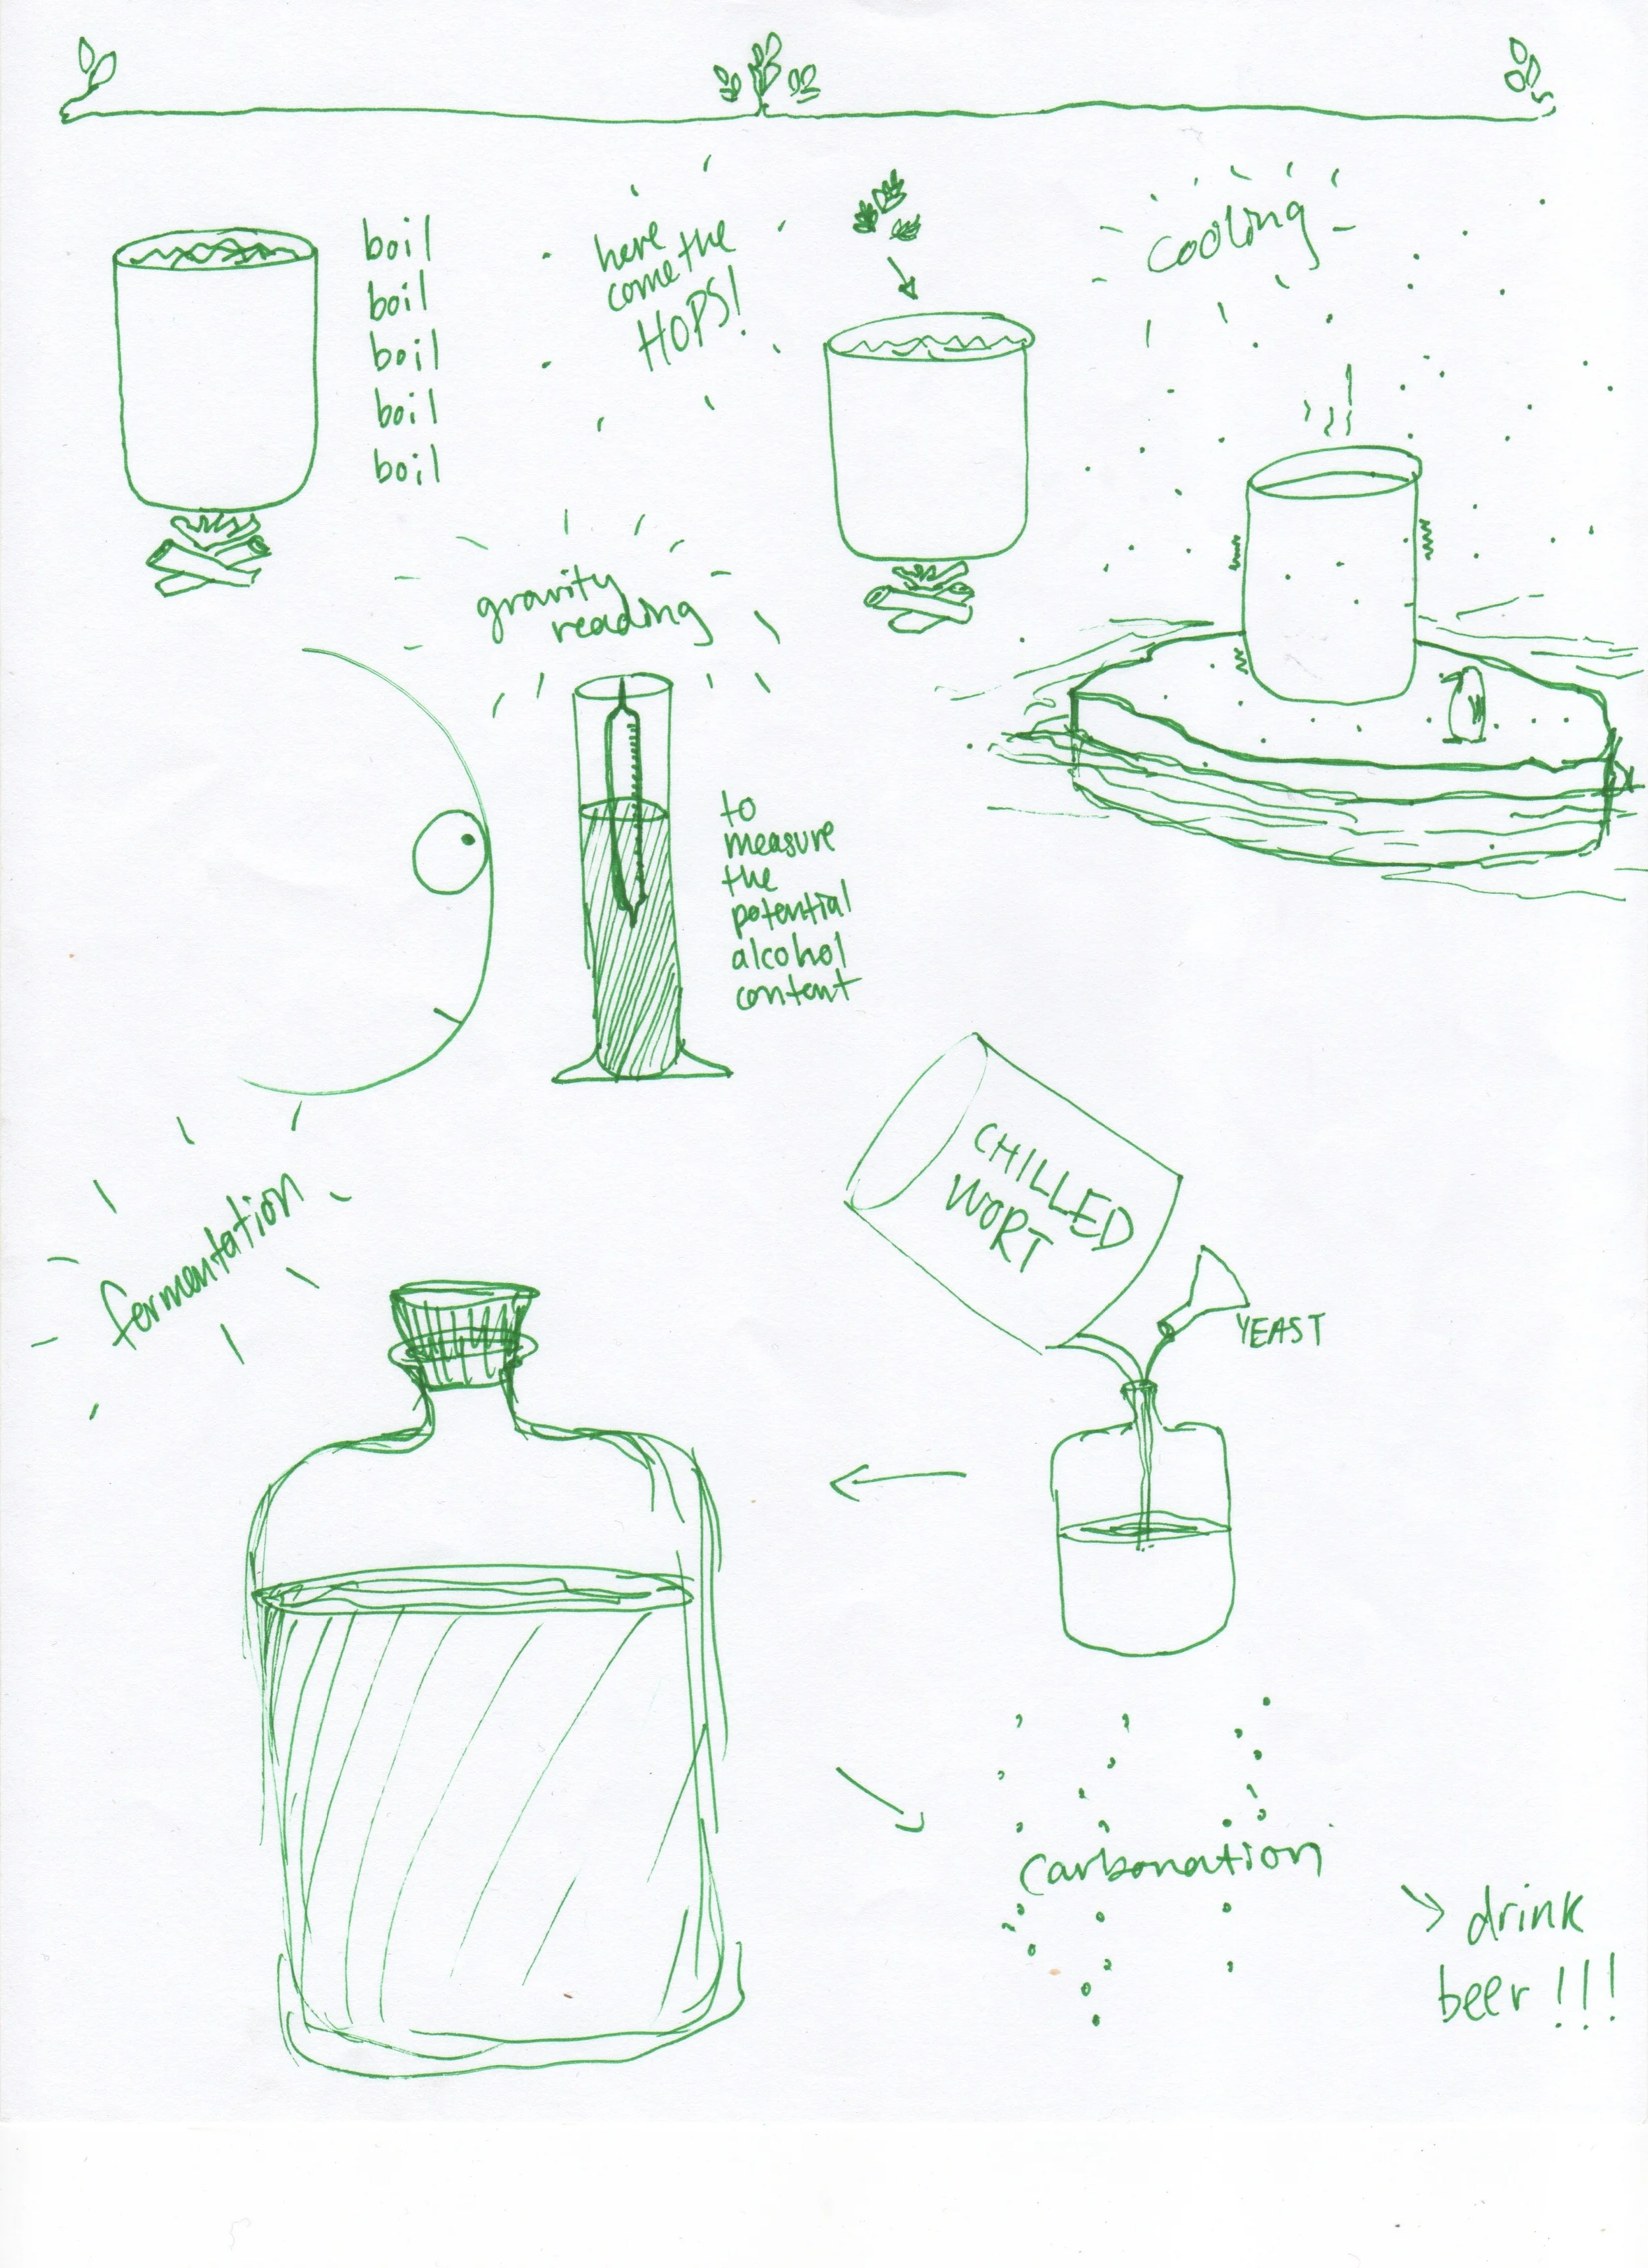 boil
boil
boil
boil
boil
here
come the
HOPS!
cooling
gravity
reading
to
measure
the
potential
alcohol
content
CHILLED
WORT
YEAST
fermentation
carbonation
drink
beer!!!